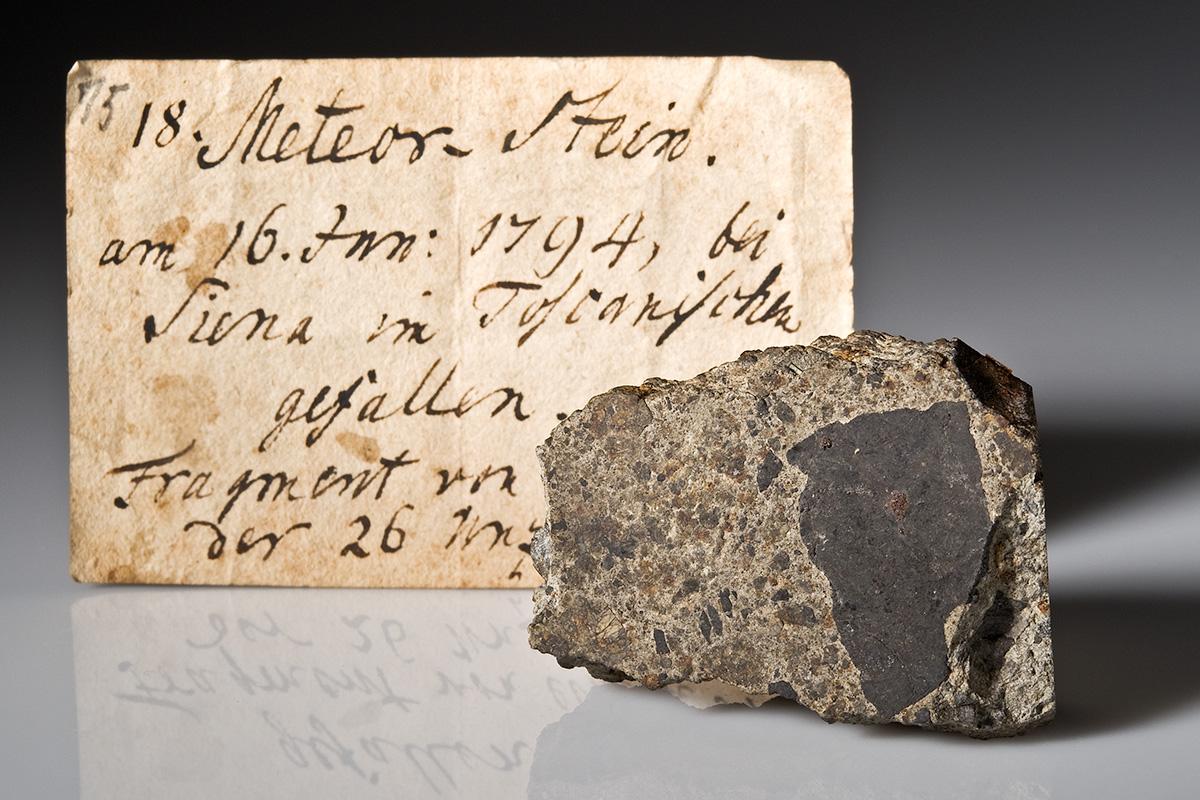 18. Meteor-Stein.
am 16. Jun: 1794, bei
Siena im Toscanischen
gefallen.
Fragment von
der 26